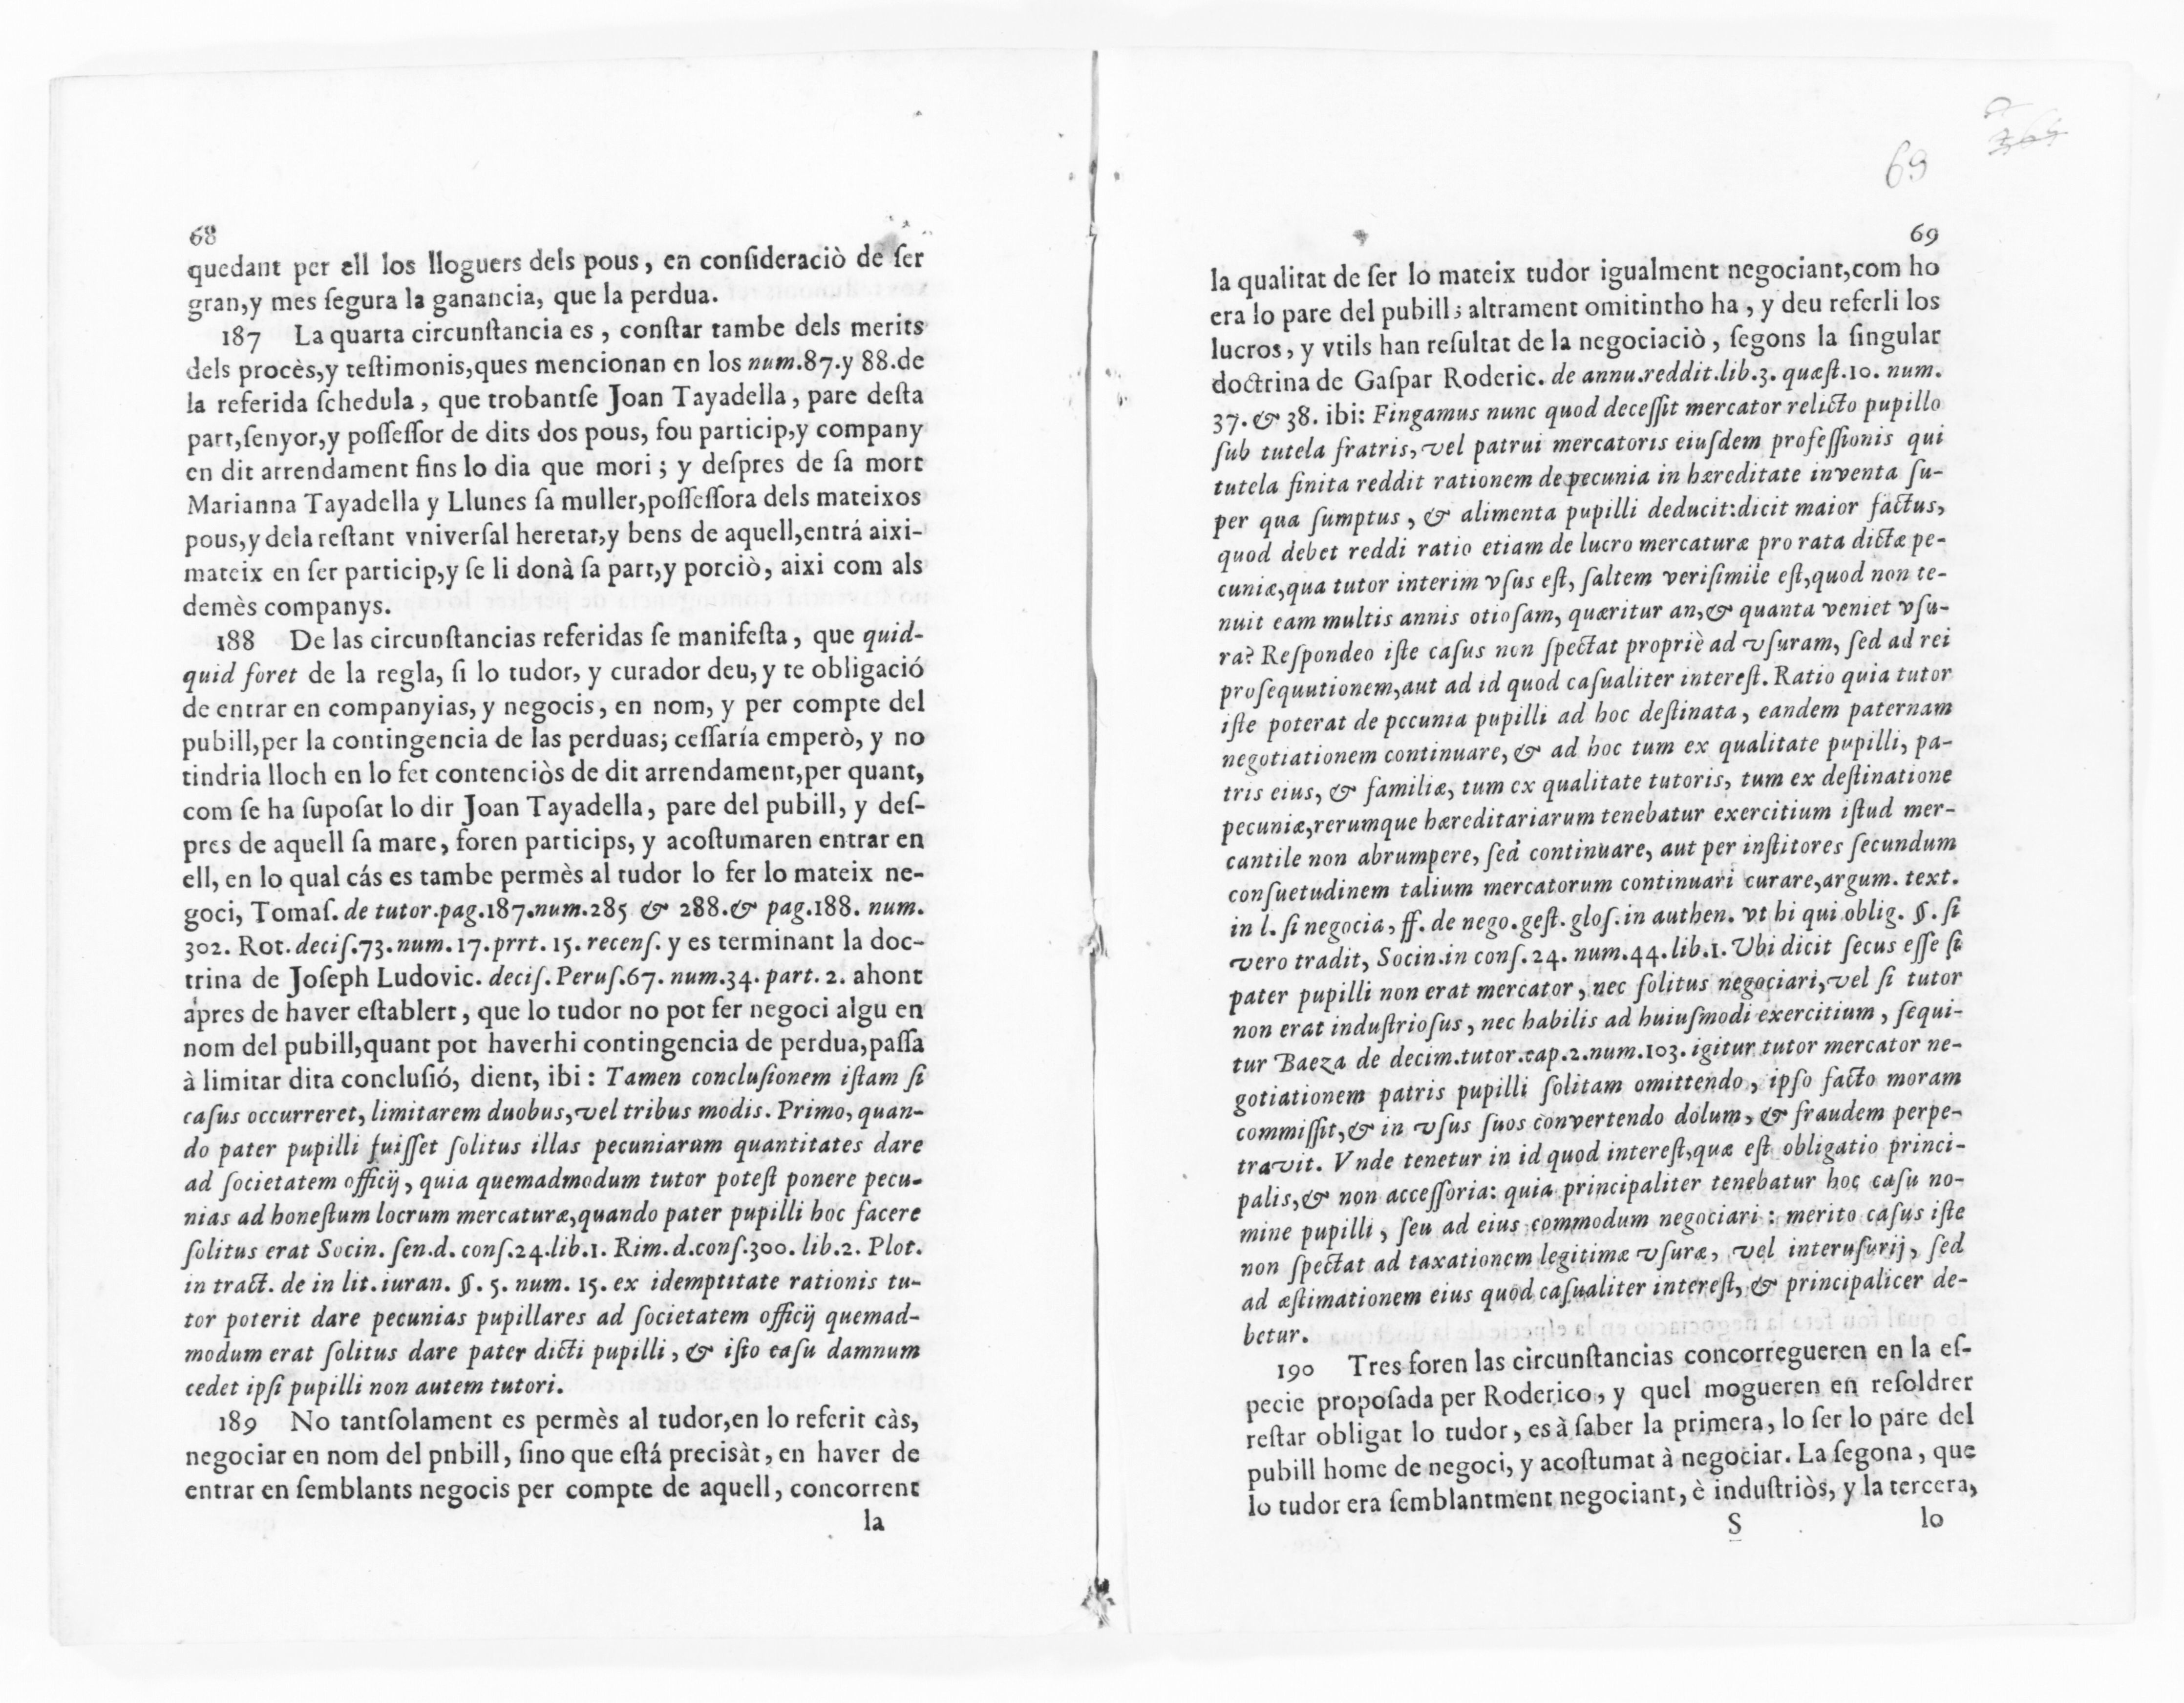 68
quedant per ell los lloguers dels pous, en conſideraciò de ſer
gran,y mes ſegura la ganancia, que la perdua.
187 La quarta circunſtancia es, conſtar tambe dels merits
dels procès,y teſtimonis,ques mencionan en los num.87.y 88.de
la referida ſchedula, que trobantſe Joan Tayadella, pare deſta
part,ſenyor,y poſſeſſor de dits dos pous, fou particip,y company
en dit arrendament fins lo dia que mori; y deſpres de ſa mort
Marianna Tayadella y Llunes ſa muller,poſſeſſora dels mateixos
pous,y dela reſtant vniverſal heretat,y bens de aquell,entrá aixi-
mateix en ſer particip,y ſe li donà ſa part,y porciò, aixi com als
demès companys.
188 De las circunſtancias referidas ſe manifeſta, que quid-
quid foret de la regla, ſi lo tudor, y curador deu, y te obligació
de entrar en companyias, y negocis, en nom, y per compte del
pubill,per la contingencia de las perduas; ceſſaría emperò, y no
tindria lloch en lo fet contenciòs de dit arrendament,per quant,
com ſe ha ſupoſat lo dir Joan Tayadella, pare del pubill, y deſ-
pres de aquell ſa mare, foren particips, y acoſtumaren entrar en
ell, en lo qual cás es tambe permès al tudor lo fer lo mateix ne-
goci, Tomaſ. de tutor.pag.187.num.285 & 288.& pag.188. num.
302. Rot. deciſ.73.num.17.prrt.15.recenſ. y es terminant la doc-
trina de Joſeph Ludovic. deciſ. Peruſ.67. num.34. part. 2. ahont
apres de haver eſtablert, que lo tudor no pot fer negoci algu en
nom del pubill,quant pot haverhi contingencia de perdua,paſſa
à limitar dita concluſió, dient, ibi: Tamen concluſionem iſtam ſi
caſus occurreret, limitarem duobus,vel tribus modis. Primo, quan-
do pater pupilli fuiſſet ſolitus illas pecuniarum quantitates dare
ad ſocietatem officij, quia quemadmodum tutor poteſt ponere pecu-
nias ad honeſtum locrum mercaturæ,quando pater pupilli hoc facere
ſolitus erat Socin. ſen.d. conſ.24.lib.1. Rim.d.conſ.300. lib.2. Plot.
in tract. de in lit.iuran. §. 5. num. 15. ex idemptitate rationis tu-
tor poterit dare pecunias pupillares ad ſocietatem officij quemad-
modum erat ſolitus dare pater dicti pupilli, & iſto caſu damnum
cedet ipſi pupilli non autem tutori.
189 No tantſolament es permès al tudor,en lo referit càs,
negociar en nom del pnbill, ſino que eſtá precisàt, en haver de
entrar en ſemblants negocis per compte de aquell, concorrent
la
69
69
la qualitat de ſer lo mateix tudor igualment negociant,com ho
era lo pare del pubill; altrament omitintho ha, y deu referli los
lucros, y vtils han reſultat de la negociaciò, ſegons la ſingular
doctrina de Gaſpar Roderic. de annu.reddit.lib.3. quæſt.10. num.
37. & 38. ibi: Fingamus nunc quod deceſſit mercator relicto pupillo
ſub tutela fratris, vel patrui mercatoris eiuſdem profeſſionis qui
tutela finita reddit rationem de pecunia in hæreditate inventa ſu-
per qua ſumptus, & alimenta pupilli deducit:dicit maior factus,
quod debet reddi ratio etiam de lucro mercaturæ pro rata dictæ pe-
cuniæ,qua tutor interim vſus eſt, ſaltem veriſimile eſt,quod non te-
nuit eam multis annis otioſam, quæritur an,& quanta veniet vſu-
ra? Reſpondeo iſte caſus non ſpectat propriè ad vſuram, ſed ad rei
proſequutionem,aut ad id quod caſualiter intereſt. Ratio quia tutor
iſte poterat de pecunia pupilli ad hoc deſtinata, eandem paternam
negotiationem continuare, & ad hoc tum ex qualitate pupilli, pa-
tris eius, & familiæ, tum ex qualitate tutoris, tum ex deſtinatione
pecuniæ,rerumque hæreditariarum tenebatur exercitium iſtud mer-
cantile non abrumpere, ſed continuare, aut per inſtitores ſecundum
conſuetudinem talium mercatorum continuari curare,argum. text.
in l. ſi negocia, ff. de nego.geſt.gloſ.in authen. vt hi qui oblig. §. ſi
vero tradit, Socin.in conſ.24. num.44.lib.1. Ubi dicit ſecus eſſe ſi
pater pupilli non erat mercator, nec ſolitus negociari,vel ſi tutor
non erat induſtrioſus, nec habilis ad huiuſmodi exercitium, ſequi-
tur Baeza de decim.tutor.cap.2.num.103. igitur tutor mercator ne-
gotiationem patris pupilli ſolitam omittendo, ipſo facto moram
commiſſit,& in vſus ſuos convertendo dolum, & fraudem perpe-
travit. Vnde tenetur in id quod intereſt,quæ eſt obligatio princi-
palis,& non acceſſoria: quia principaliter tenebatur hoc caſu no-
mine pupilli, ſeu ad eius commodum negociari: merito caſus iſte
non ſpectat ad taxationem legitimæ vſuræ, vel interuſurij, ſed
ad æſtimationem eius quod caſualiter intereſt, & principalicer de-
betur.
190 Tres foren las circunſtancias concorregueren en la eſ-
pecie propoſada per Roderico, y quel mogueren en reſoldrer
reſtar obligat lo tudor, es à ſaber la primera, lo ſer lo pare del
pubill home de negoci, y acoſtumat à negociar. La ſegona, que
lo tudor era ſemblantment negociant, è induſtriòs, y la tercera,
S lo